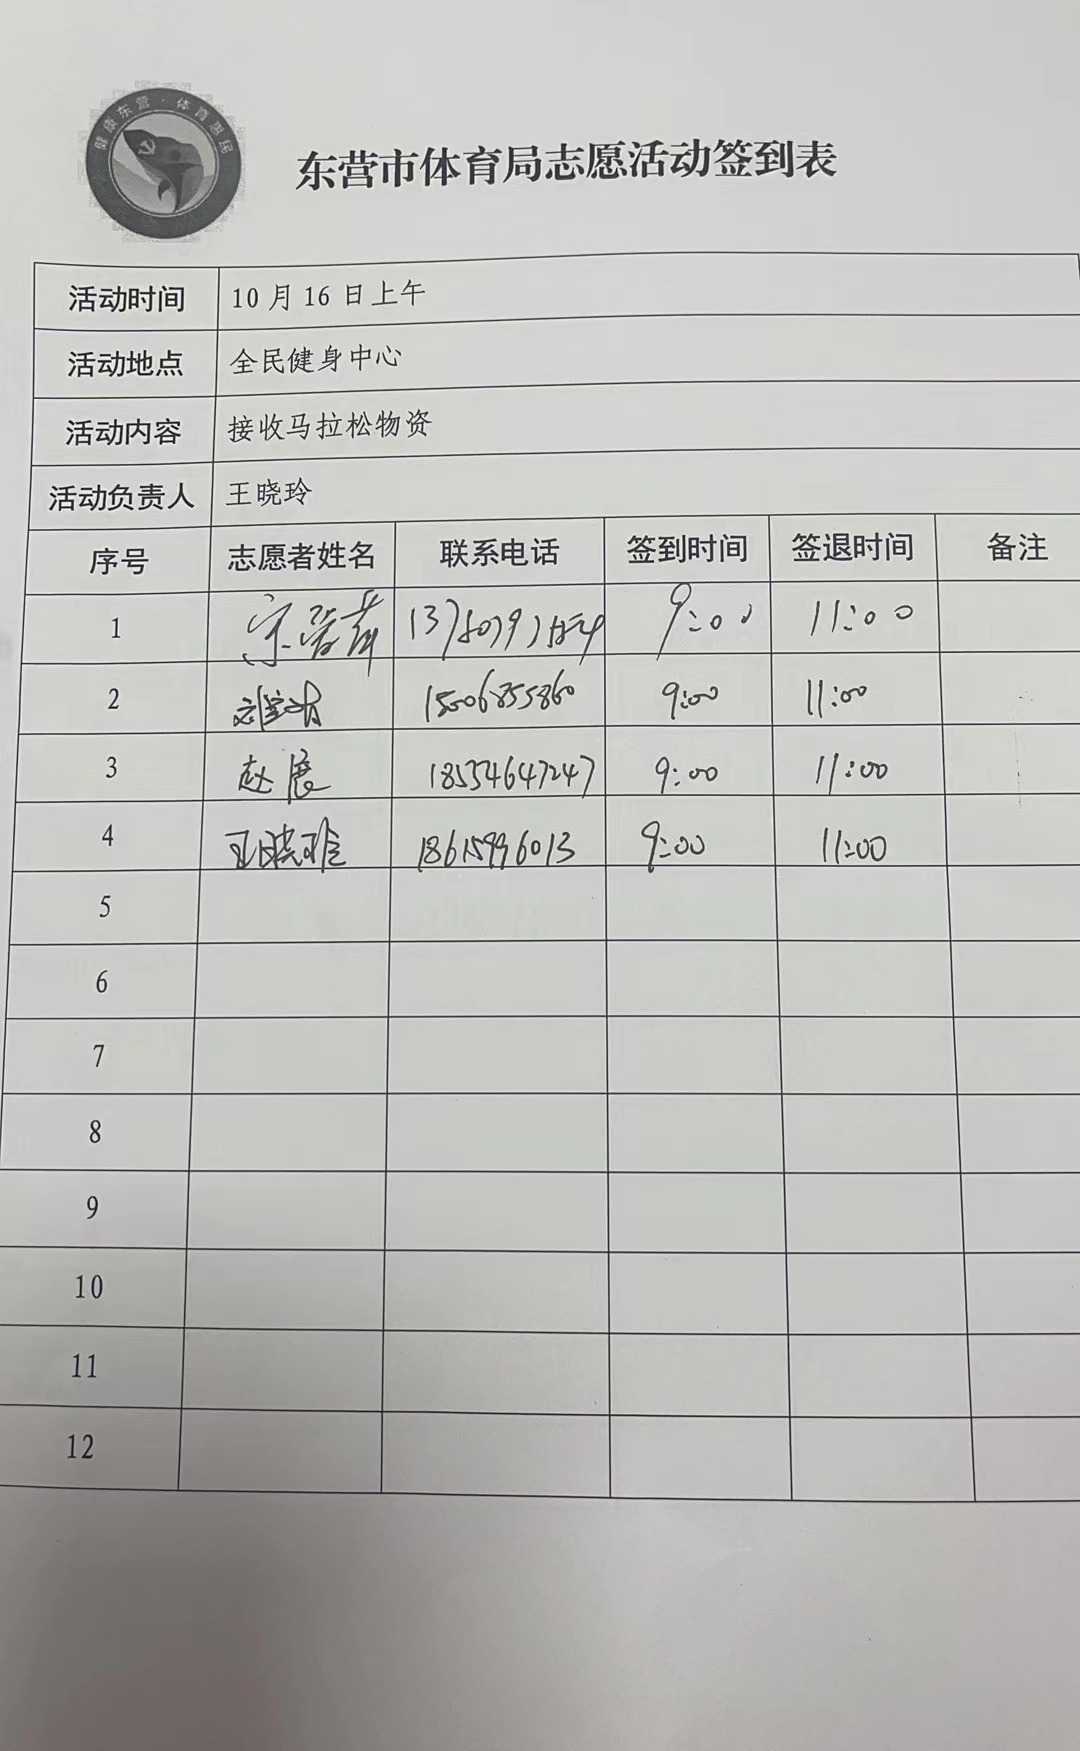 健康东营·体育惠民
东营市体育局志愿活动签到表
活动时间 10月16日上午
活动地点 全民健身中心
活动内容 接收马拉松物资
活动负责人 王晓玲
序号 志愿者姓名 联系电话 签到时间 签退时间 备注
1 9:00 11:00
2 15006855860 9:00 11:00
3 赵展 18554647247 9:00 11:00
4 王晓玲 18615996013 9:00 11:00
5
6
7
8
9
10
11
12